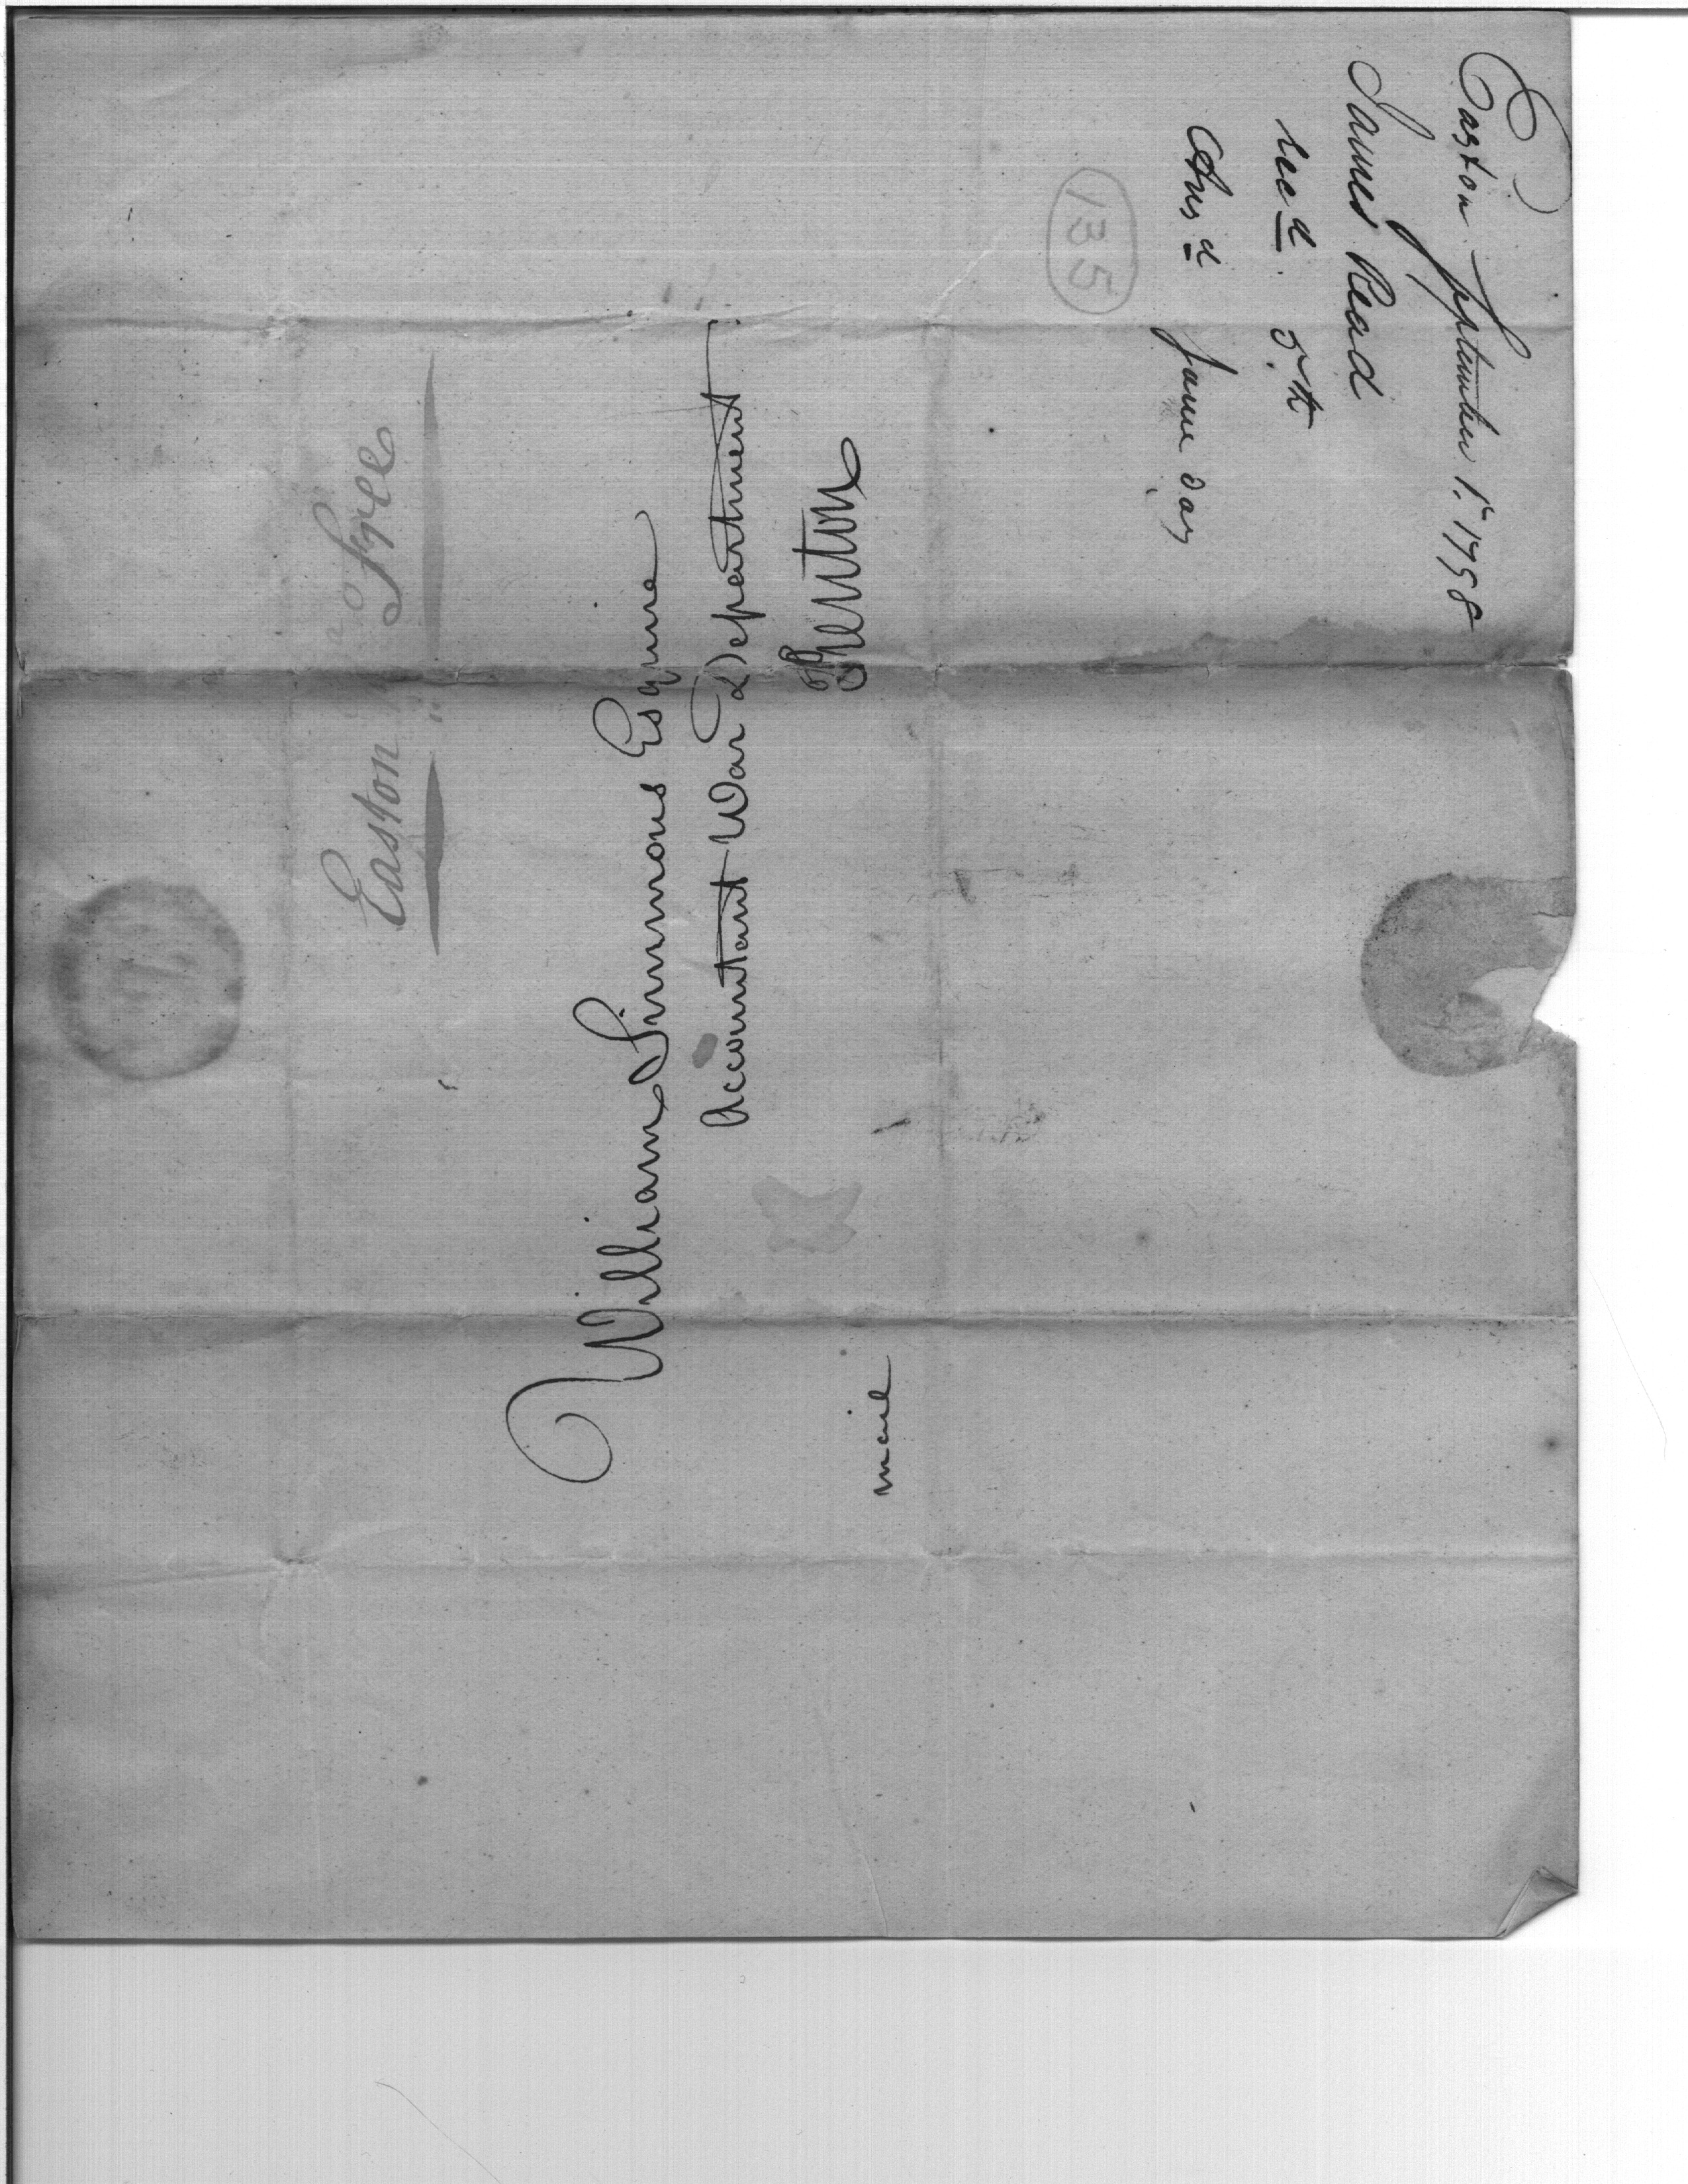 Easton September 1st 1798
James Read
Recd. 5th
Ansd same day
135
Easton Free
William Simmons Esquire
Accountant War Department
Trenton
mail